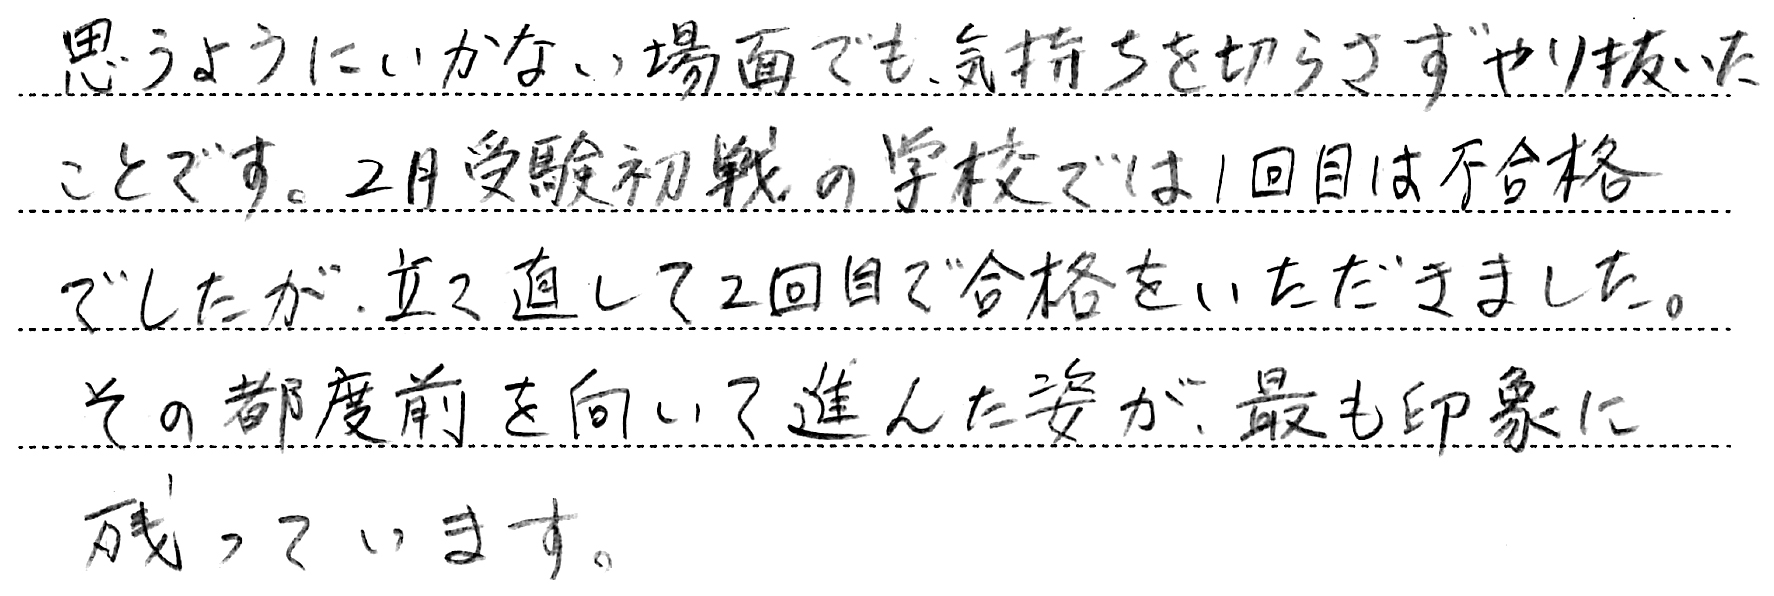 思うようにいかない場面でも、気持ちを切らさずやり抜いた
ことです。2月受験初戦の学校では1回目は不合格
でしたが、立て直して2回目で合格をいただきました。
その都度前を向いて進んだ姿が、最も印象に
残っています。